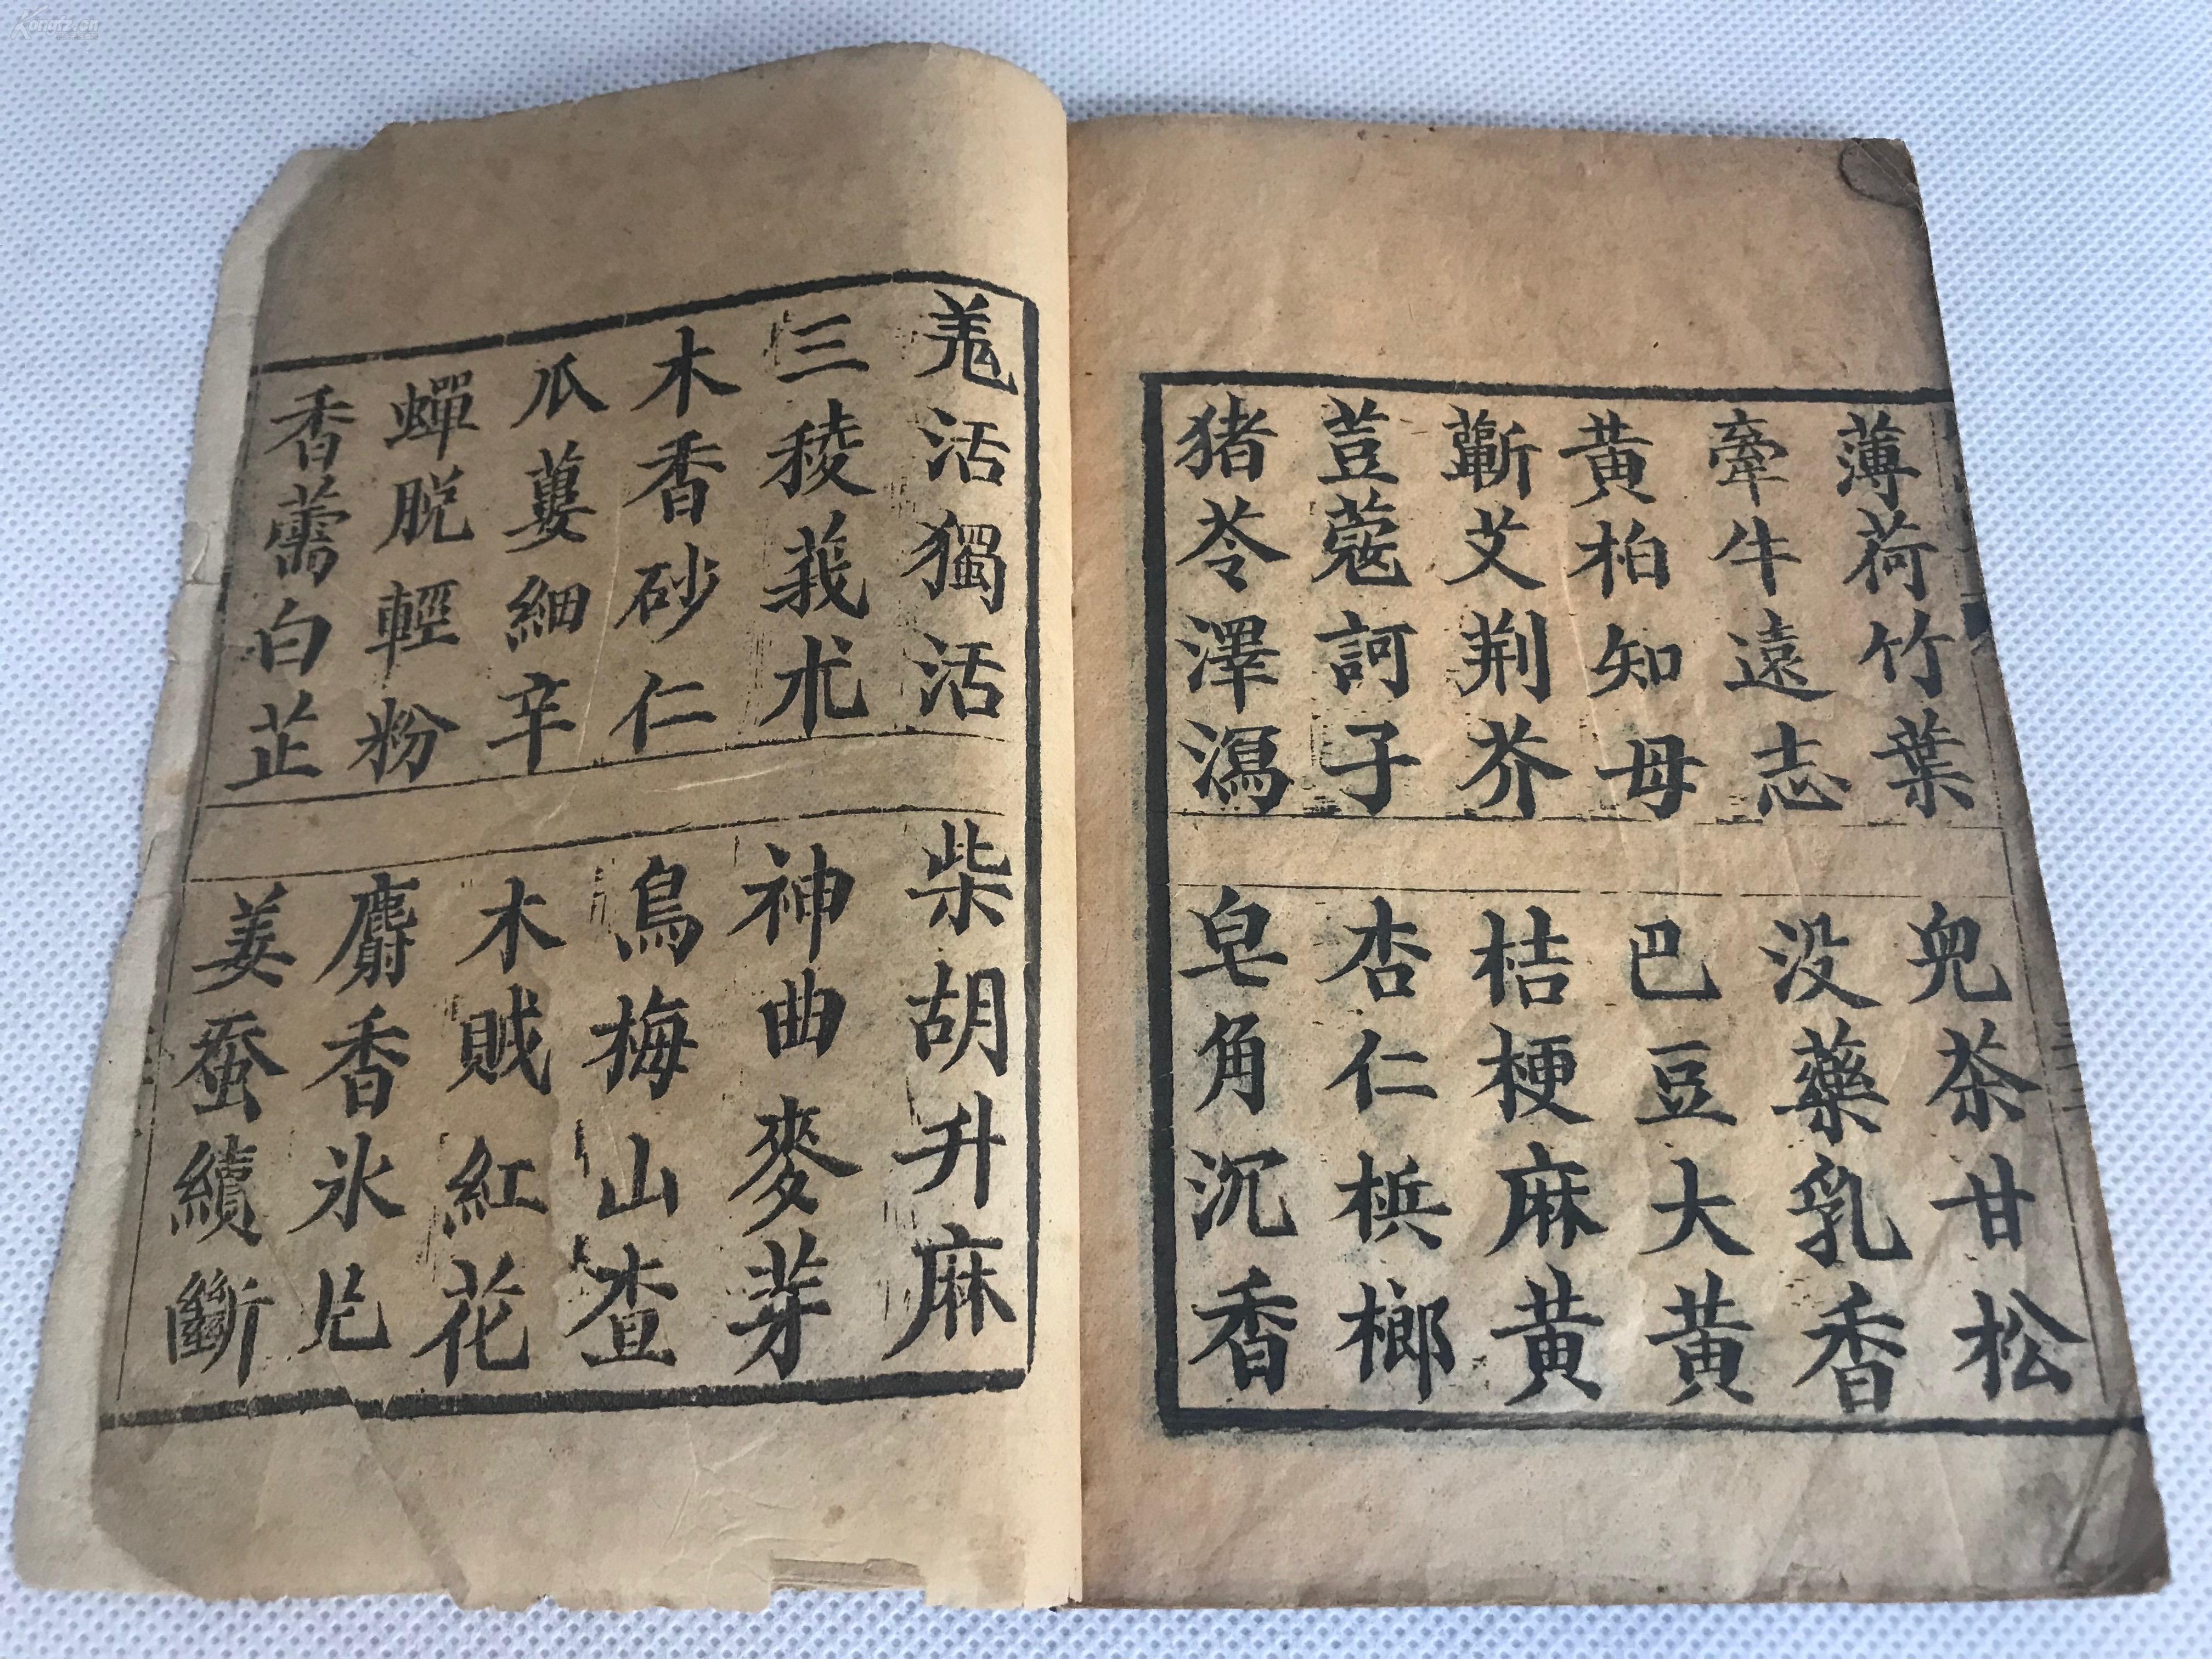 薄荷竹葉
牽牛遠志
黄柏知母
蘄艾荆芥
荳蔻訶子
猪苓澤瀉
兒茶甘松
没藥乳香
巴豆大黄
桔梗麻黄
杏仁梹榔
皂角沉香
羗活獨活
三稜莪朮
木香砂仁
瓜蔞細辛
蟬脱輕粉
香薷白芷
柴胡升麻
神曲麥芽
烏梅山查
木賊紅花
麝香氷片
姜蚕續斷
Kongfz.cn